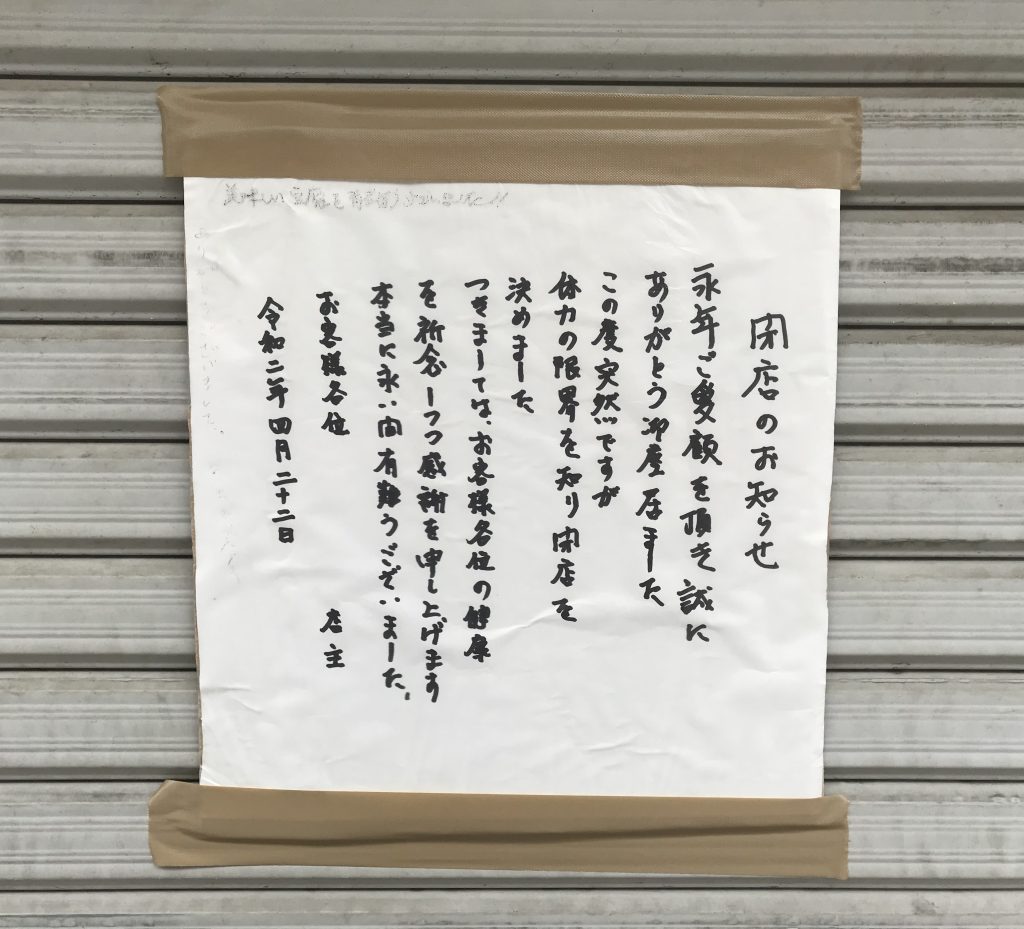 閉店のお知らせ
永年ご愛顧を頂き誠に
ありがとう御座居ました
この度突然ですが
体力の限界を知り閉店を
決めました
つきましては、お客様各位の健康
を祈念しつつ感謝を申し上げます
本当に永い間有難うございました。
お客様各位 店主
令和二年四月二十二日
美味しい豆腐を有難うございました!!